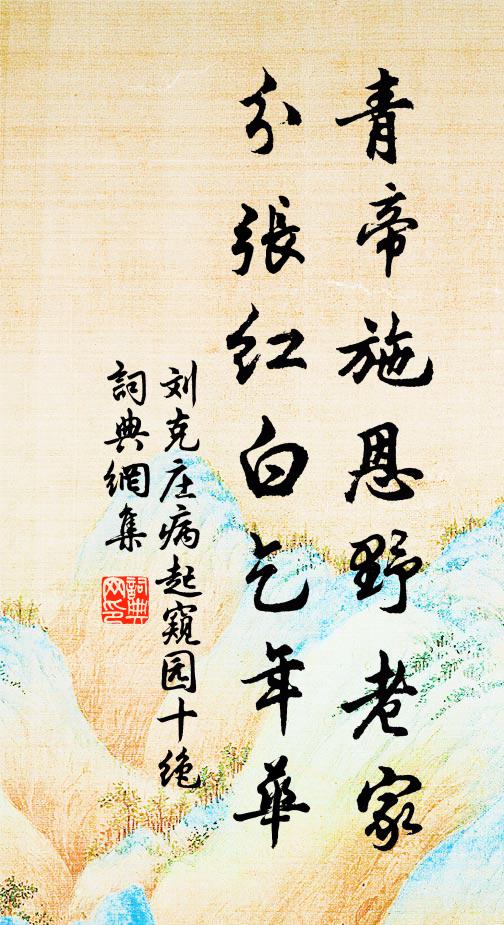 青帝施恩野老家
分張红白乞年華
刘克庄病起窺园十绝
詞典網集
詞典
网印